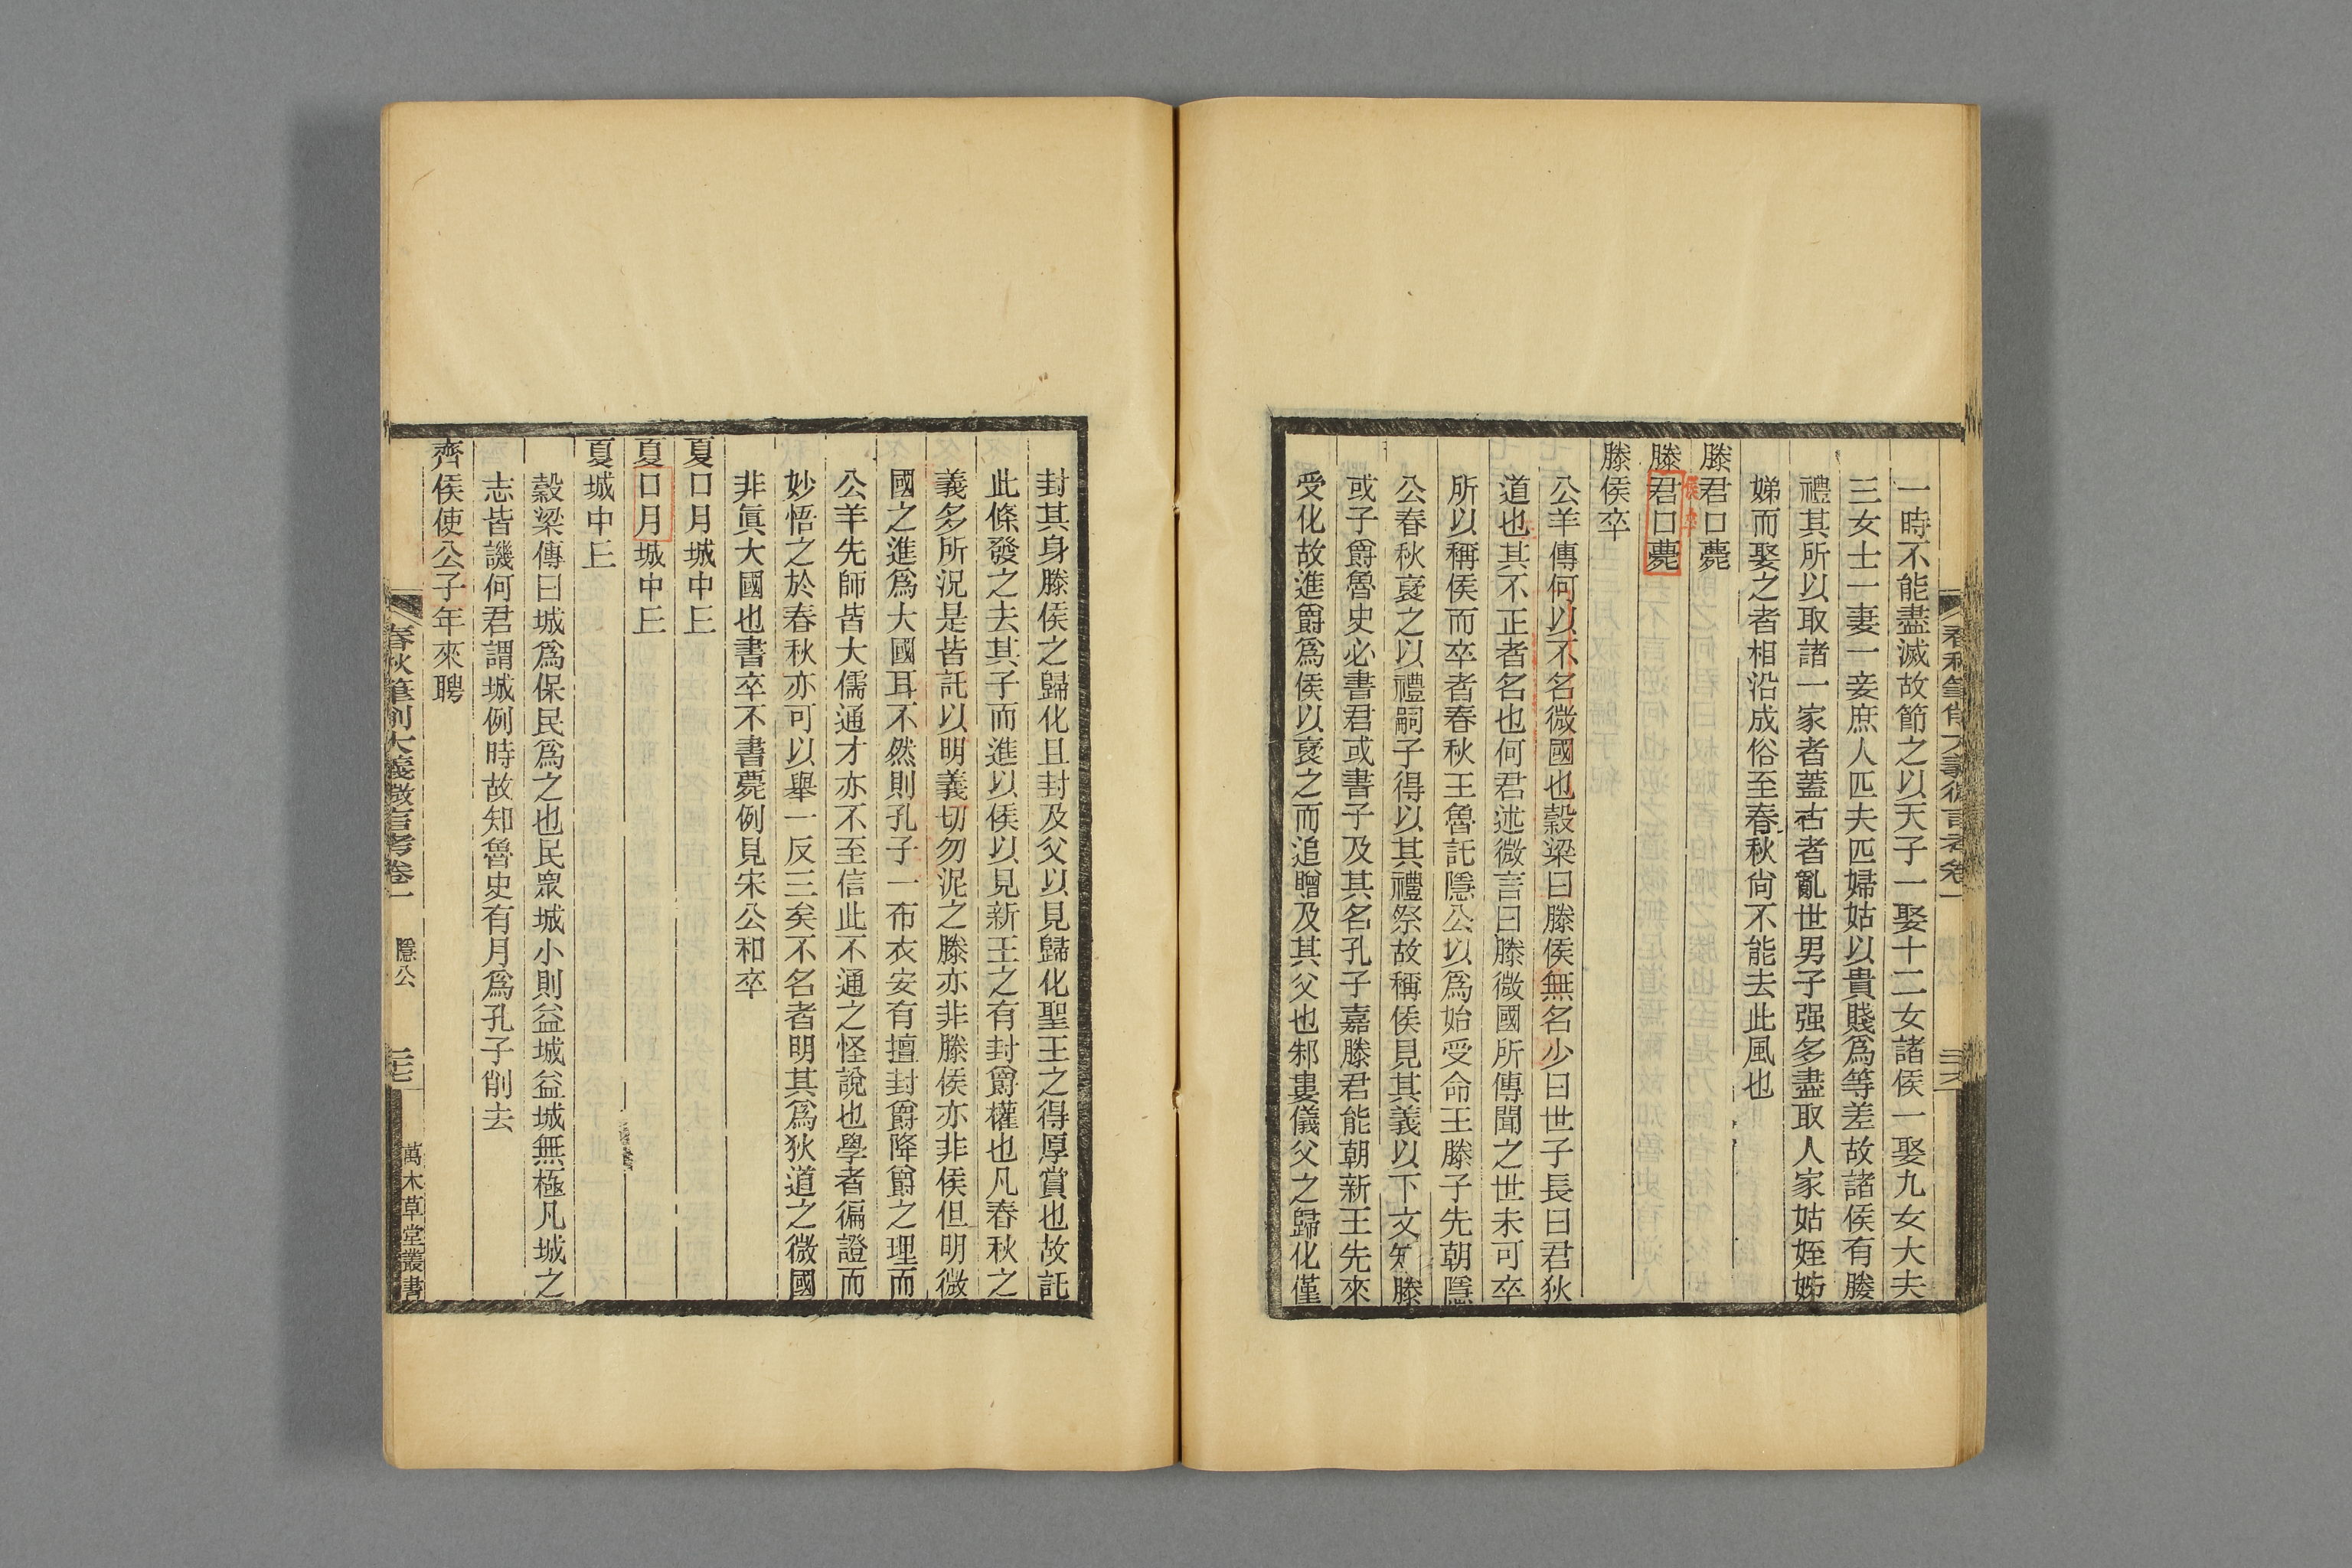 春秋筆削大義微言考卷一
三六
一時不能盡滅故節之以天子一娶十二女諸侯一娶九女大夫
三女士一妻一妾庶人匹夫匹婦姑以貴賤爲等差故諸侯有媵
禮其所以取諸一家者蓋古者亂世男子强多盡取人家姑姪姊
娣而娶之者相沿成俗至春秋尙不能去此風也
滕君口薨
侯卒
滕君口薨
滕侯卒
公羊傳何以不名微國也穀梁曰滕侯無名少曰世子長曰君狄
道也其不正者名也何君述微言曰滕微國所傳聞之世未可卒
所以稱侯而卒者春秋王魯託隱公以爲始受命王滕子先朝隱
公春秋襃之以禮嗣子得以其禮祭故稱侯見其義以下文知滕
或子爵魯史必書君或書子及其名孔子嘉滕君能朝新王先來
受化故進爵爲侯以襃之而追贈及其父也邾婁儀父之歸化僅
封其身滕侯之歸化且封及父以見歸化聖王之得厚賞也故託
此條發之去其子而進以侯以見新王之有封爵權也凡春秋之
義多所況是皆託以明義切勿泥之滕亦非滕侯亦非侯但明微
國之進爲大國耳不然則孔子一布衣安有擅封爵降爵之理而
公羊先師皆大儒通才亦不至信此不通之怪說也學者徧證而
妙悟之於春秋亦可以舉一反三矣不名者明其爲狄道之微國
非眞大國也書卒不書薨例見宋公和卒
夏口月城中丘
夏口月城中丘
夏城中丘
穀梁傳曰城爲保民爲之也民衆城小則益城益城無極凡城之
志皆譏何君謂城例時故知魯史有月爲孔子削去
齊侯使公子年來聘
春秋筆削大義微言考卷一
隱公
三七
萬木草堂叢書